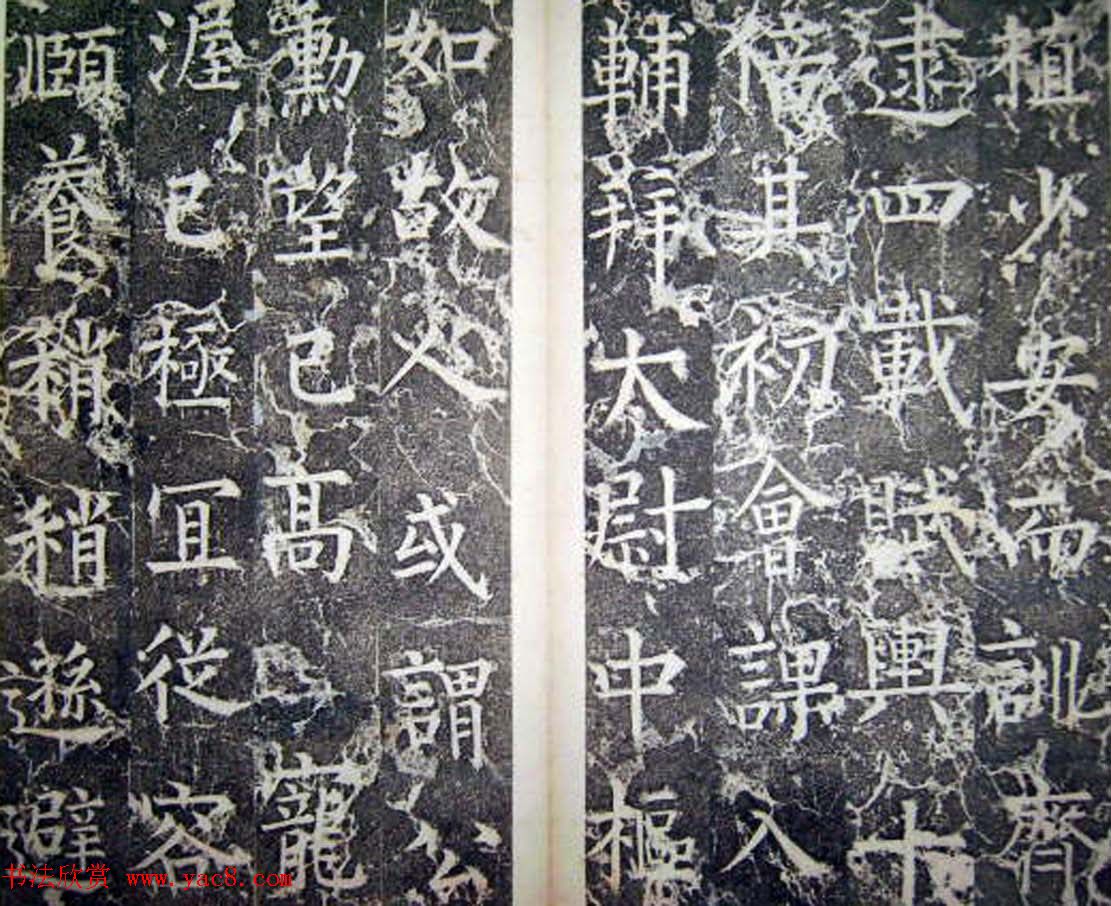 植少安而訓齊
逮四載賦輿
倍其初會課入
輔拜太尉中樞
如故人或謂公
勳望已高寵
渥已極宜從容
頤養稍稍遜避
书法欣赏 www.yac8.com